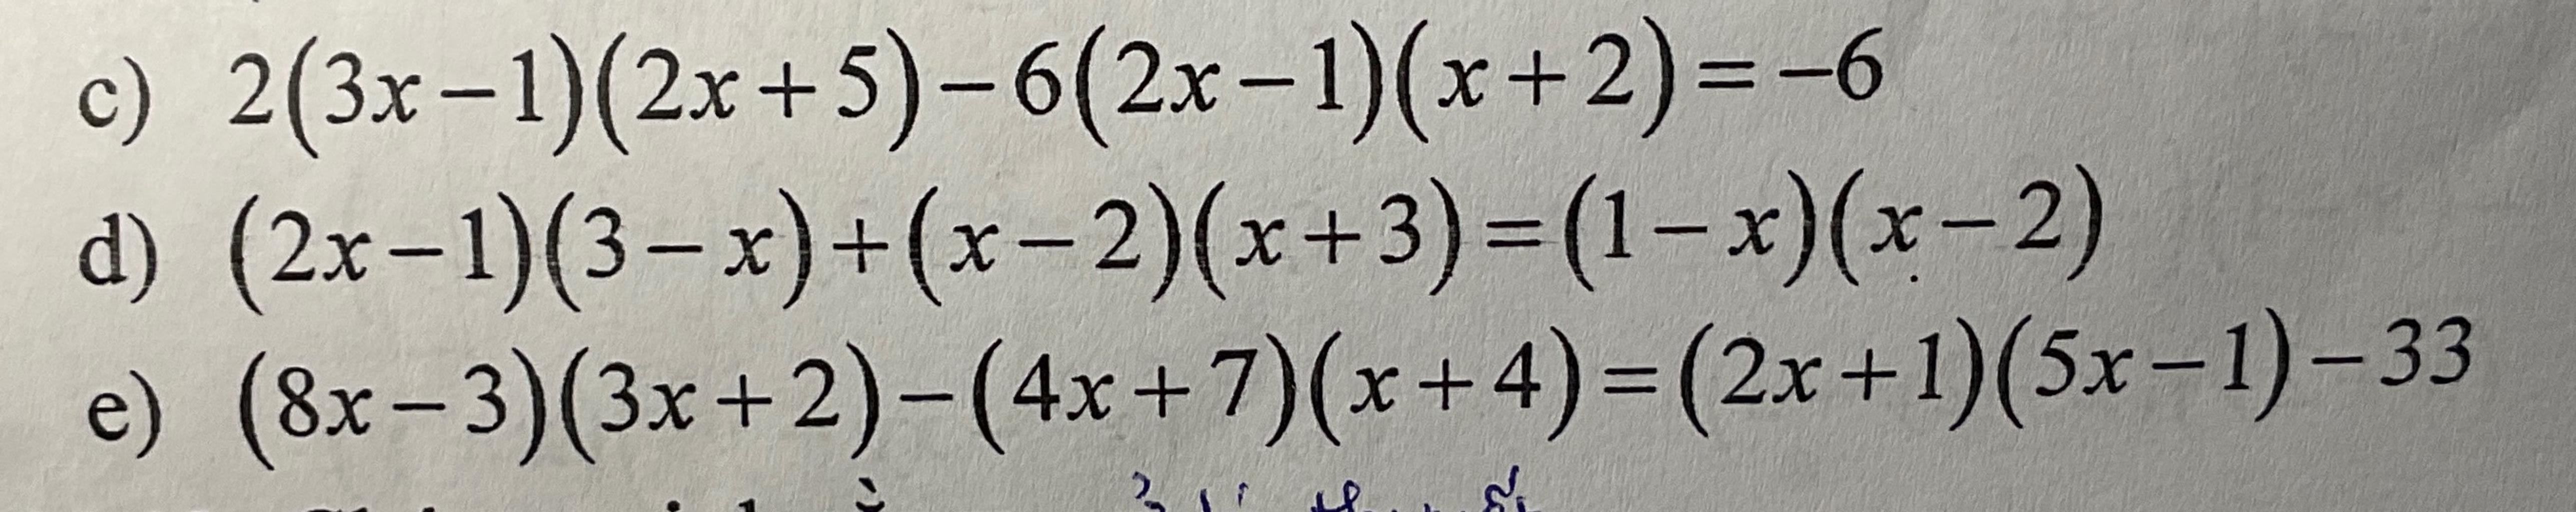 c) 2(3x−1)(2x+5)−6(2x−1)(x+2)=−6
d) (2x−1)(3−x)+(x−2)(x+3)=(1−x)(x−2)
e) (8x−3)(3x+2)−(4x+7)(x+4)=(2x+1)(5x−1)−33